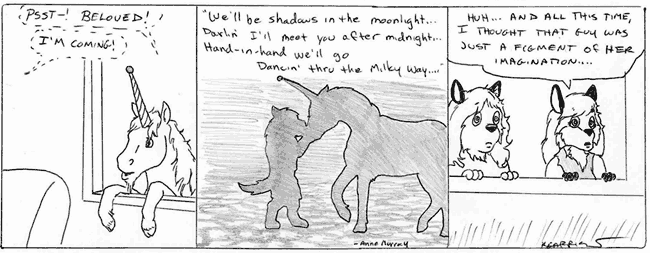 PSST-! BELOVED!
I'M COMING!
"We'll be shadows in the moonlight...
Darlin' I'll meet you after midnight...
Hand-in-hand we'll go
Dancin' thru the Milky Way...."
-Anne Murray
HUH... AND ALL THIS TIME,
I THOUGHT THAT GUY WAS
JUST A FIGMENT OF HER
IMAGINATION....